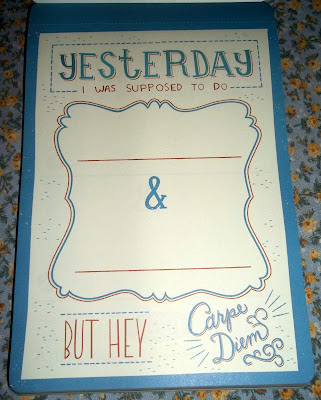 YESTERDAY
I WAS SUPPOSED TO DO
&
BUT HEY
Carpe
Diem